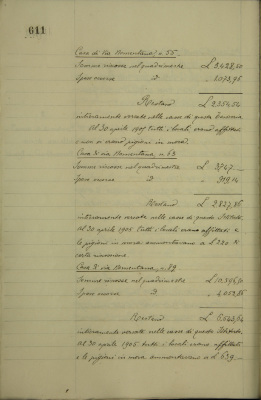 611
Casa di via Nomentana, n. 55.
Somme riscosse nel quadrimestre £ 9.428,50
Spese occorse ,, 2.073,95
Restano £
interamente versate nelle casse di questo
Al 30 aprile 1905 tutti i locali erano affittati
e non vi erano pigioni in mora.
Casa di via Nomentana, n. 69
Somme riscosse nel quadrimestre £ 3747 —
Spese occorse ,, 919,14
Restano £ 2.827,86
interamente versate nelle casse di questo Istituto.
Al 30 aprile 1905 tutti i locali erano affittati e
le pigioni in mora ammontavano a £ 220
Casa di via Nomentana, n. 89
Somme riscosse nel quadrimestre £ 10.596,50
Spese occorse ,, 4.052,86
Restano £ 6.543,64
interamente versate nelle casse di questo Istituto.
Al 30 aprile 1905 tutti i locali erano affittati
e le pigioni in mora ammontavano a £ 639 —